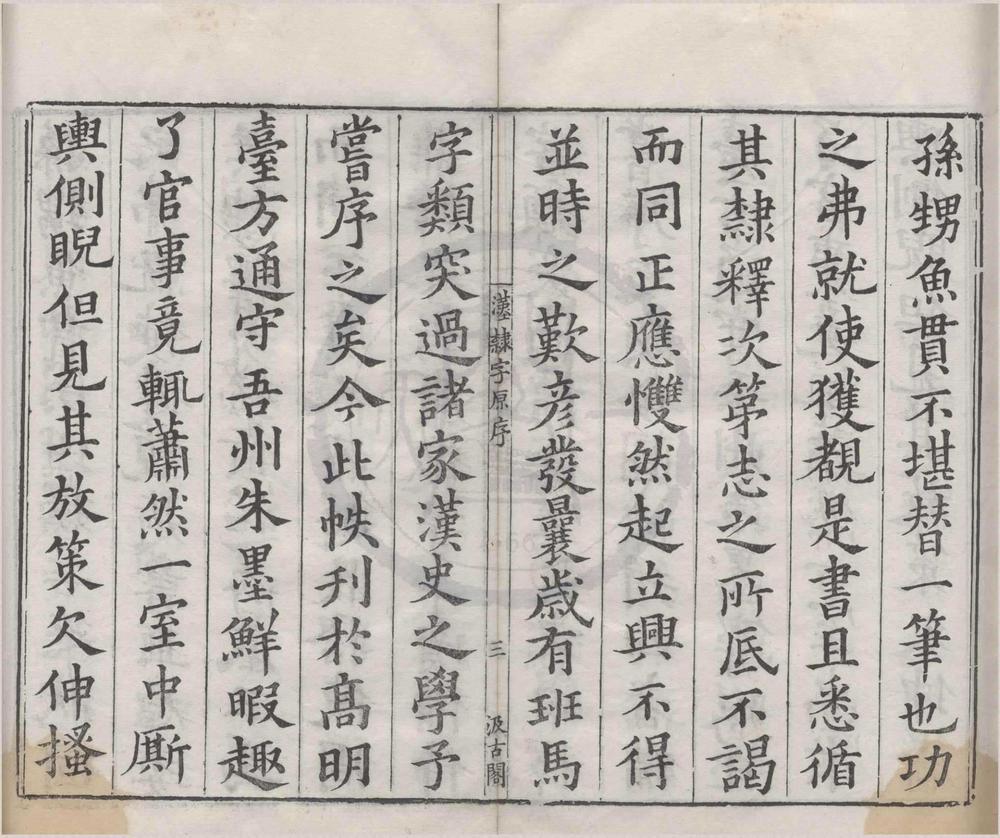 孫甥魚貫不堪替一筆也功
之弗就使獲覩是書且悉循
其隸釋次第志之所底不謁
而同正應懽然起立興不得
並時之歎彦發曩歲有班馬
字類突過諸家漢史之學予
漢隸字原序 三 汲古閣
嘗序之矣今此帙刊於高明
臺方通守吾州朱墨鮮暇趣
了官事竟輒蕭然一室中厮
輿側睨但見其放策欠伸搔